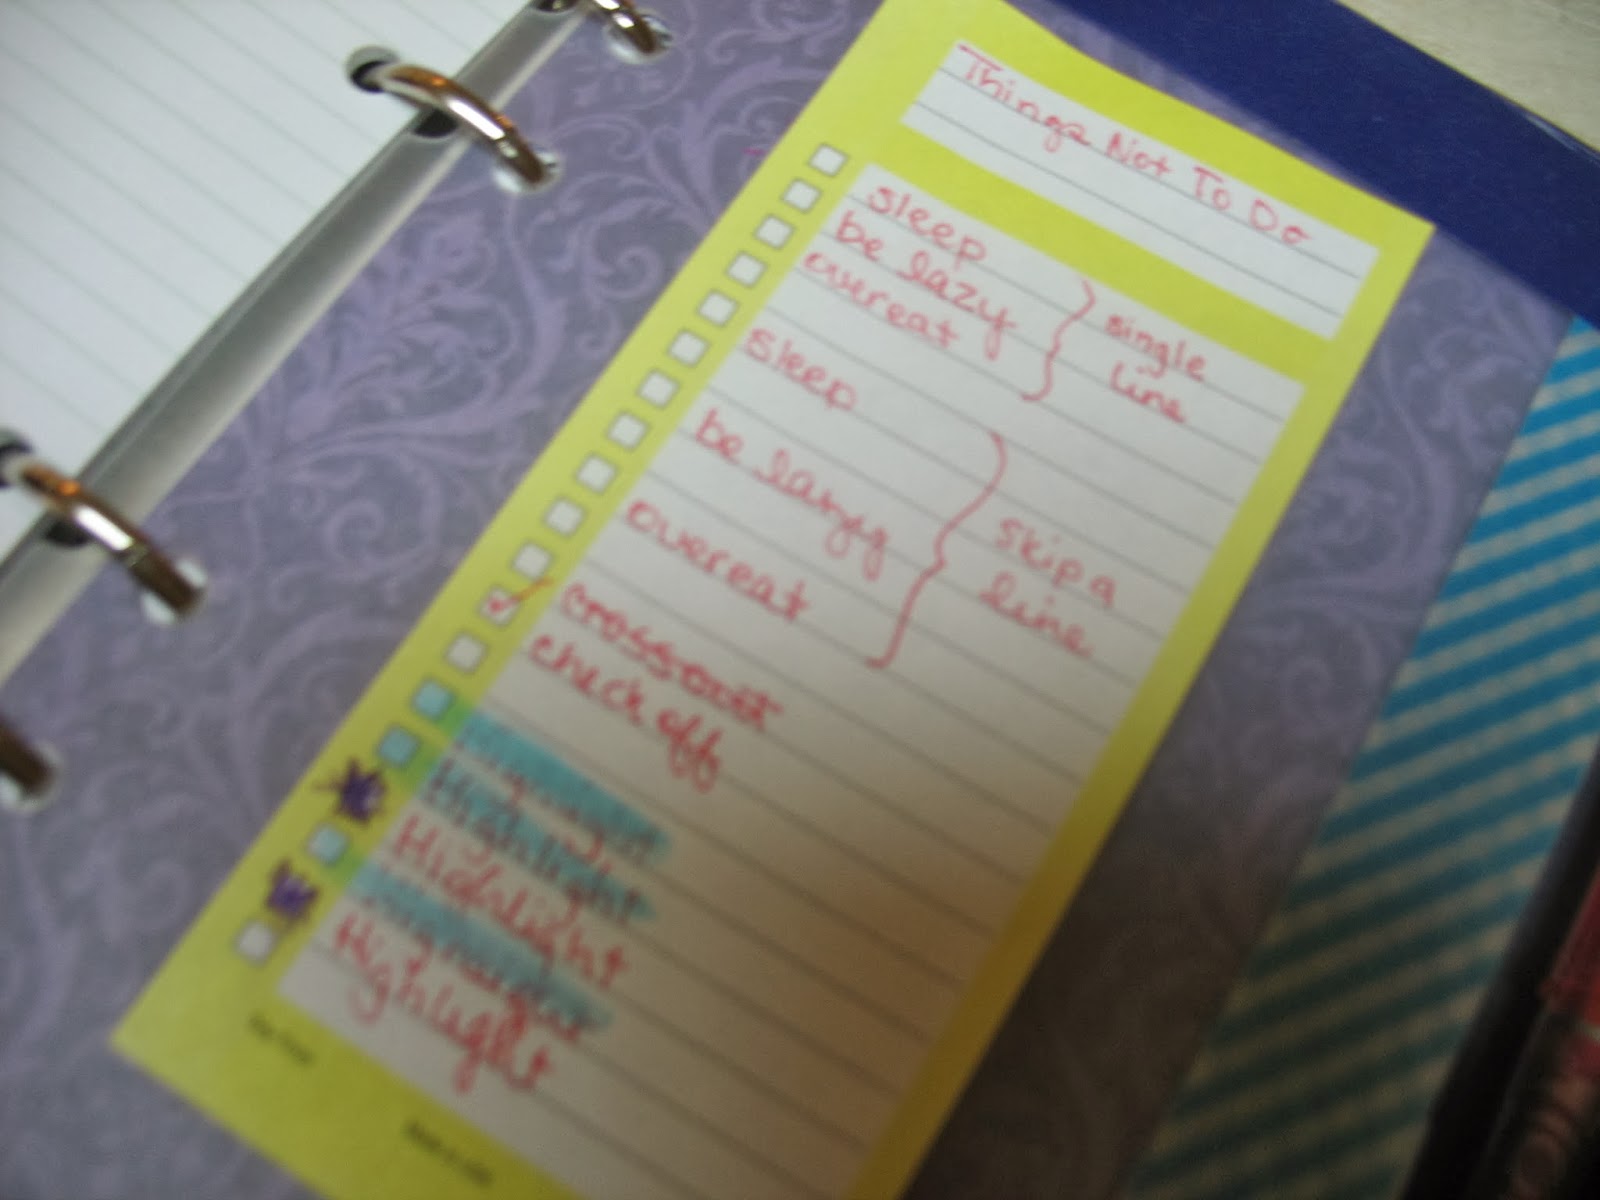 Things Not To Do
sleep
be lazy
overeat
single
line
sleep
be lazy
overeat
skip a
line
crossout
check off
Highlight
Highlight
Highlight
Highlight
Highlight